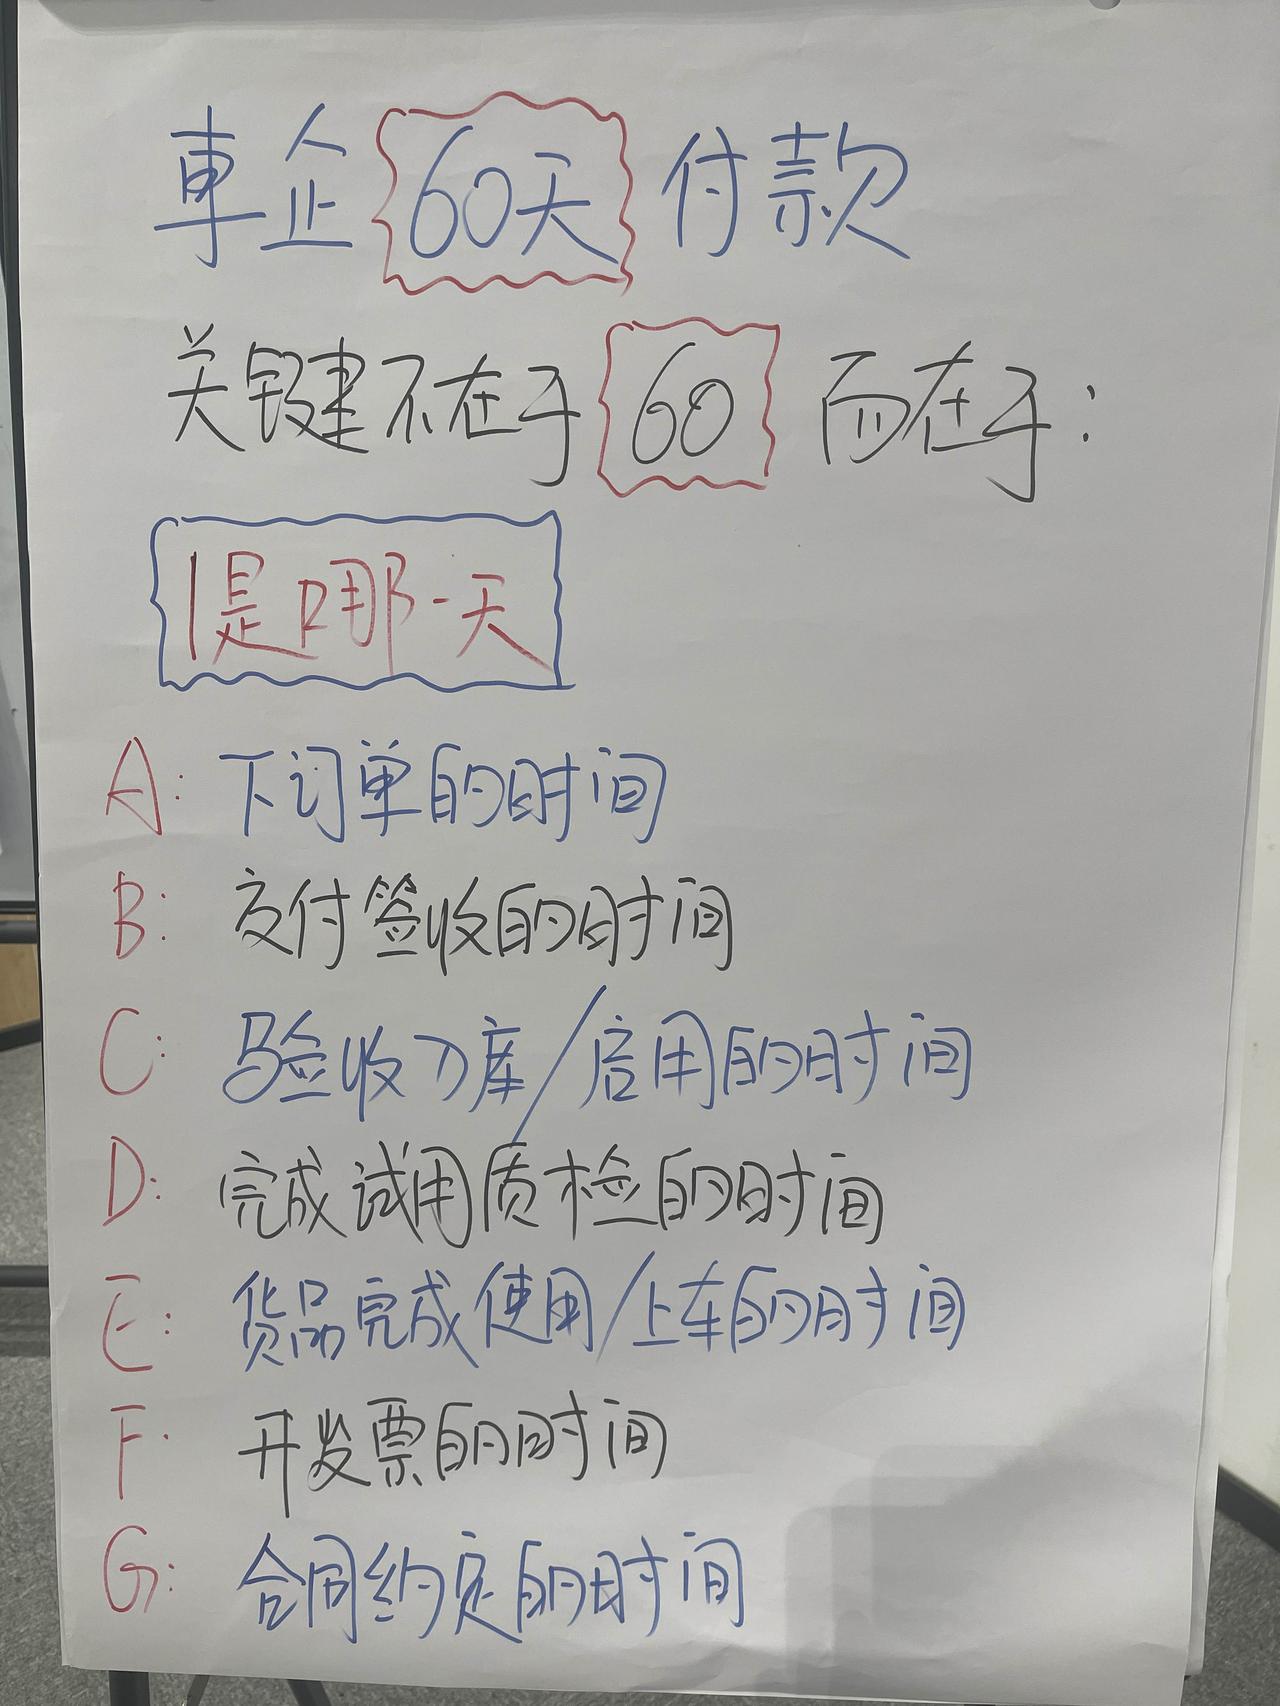 車企60天付款
关键不在于60而在于:
1是哪一天
A: 下订单的时间
B: 交付签收的时间
C: 验收入库/启用的时间
D: 完成试用质检的时间
E: 货品完成使用/上车的时间
F: 开发票的时间
G: 合同约定的时间